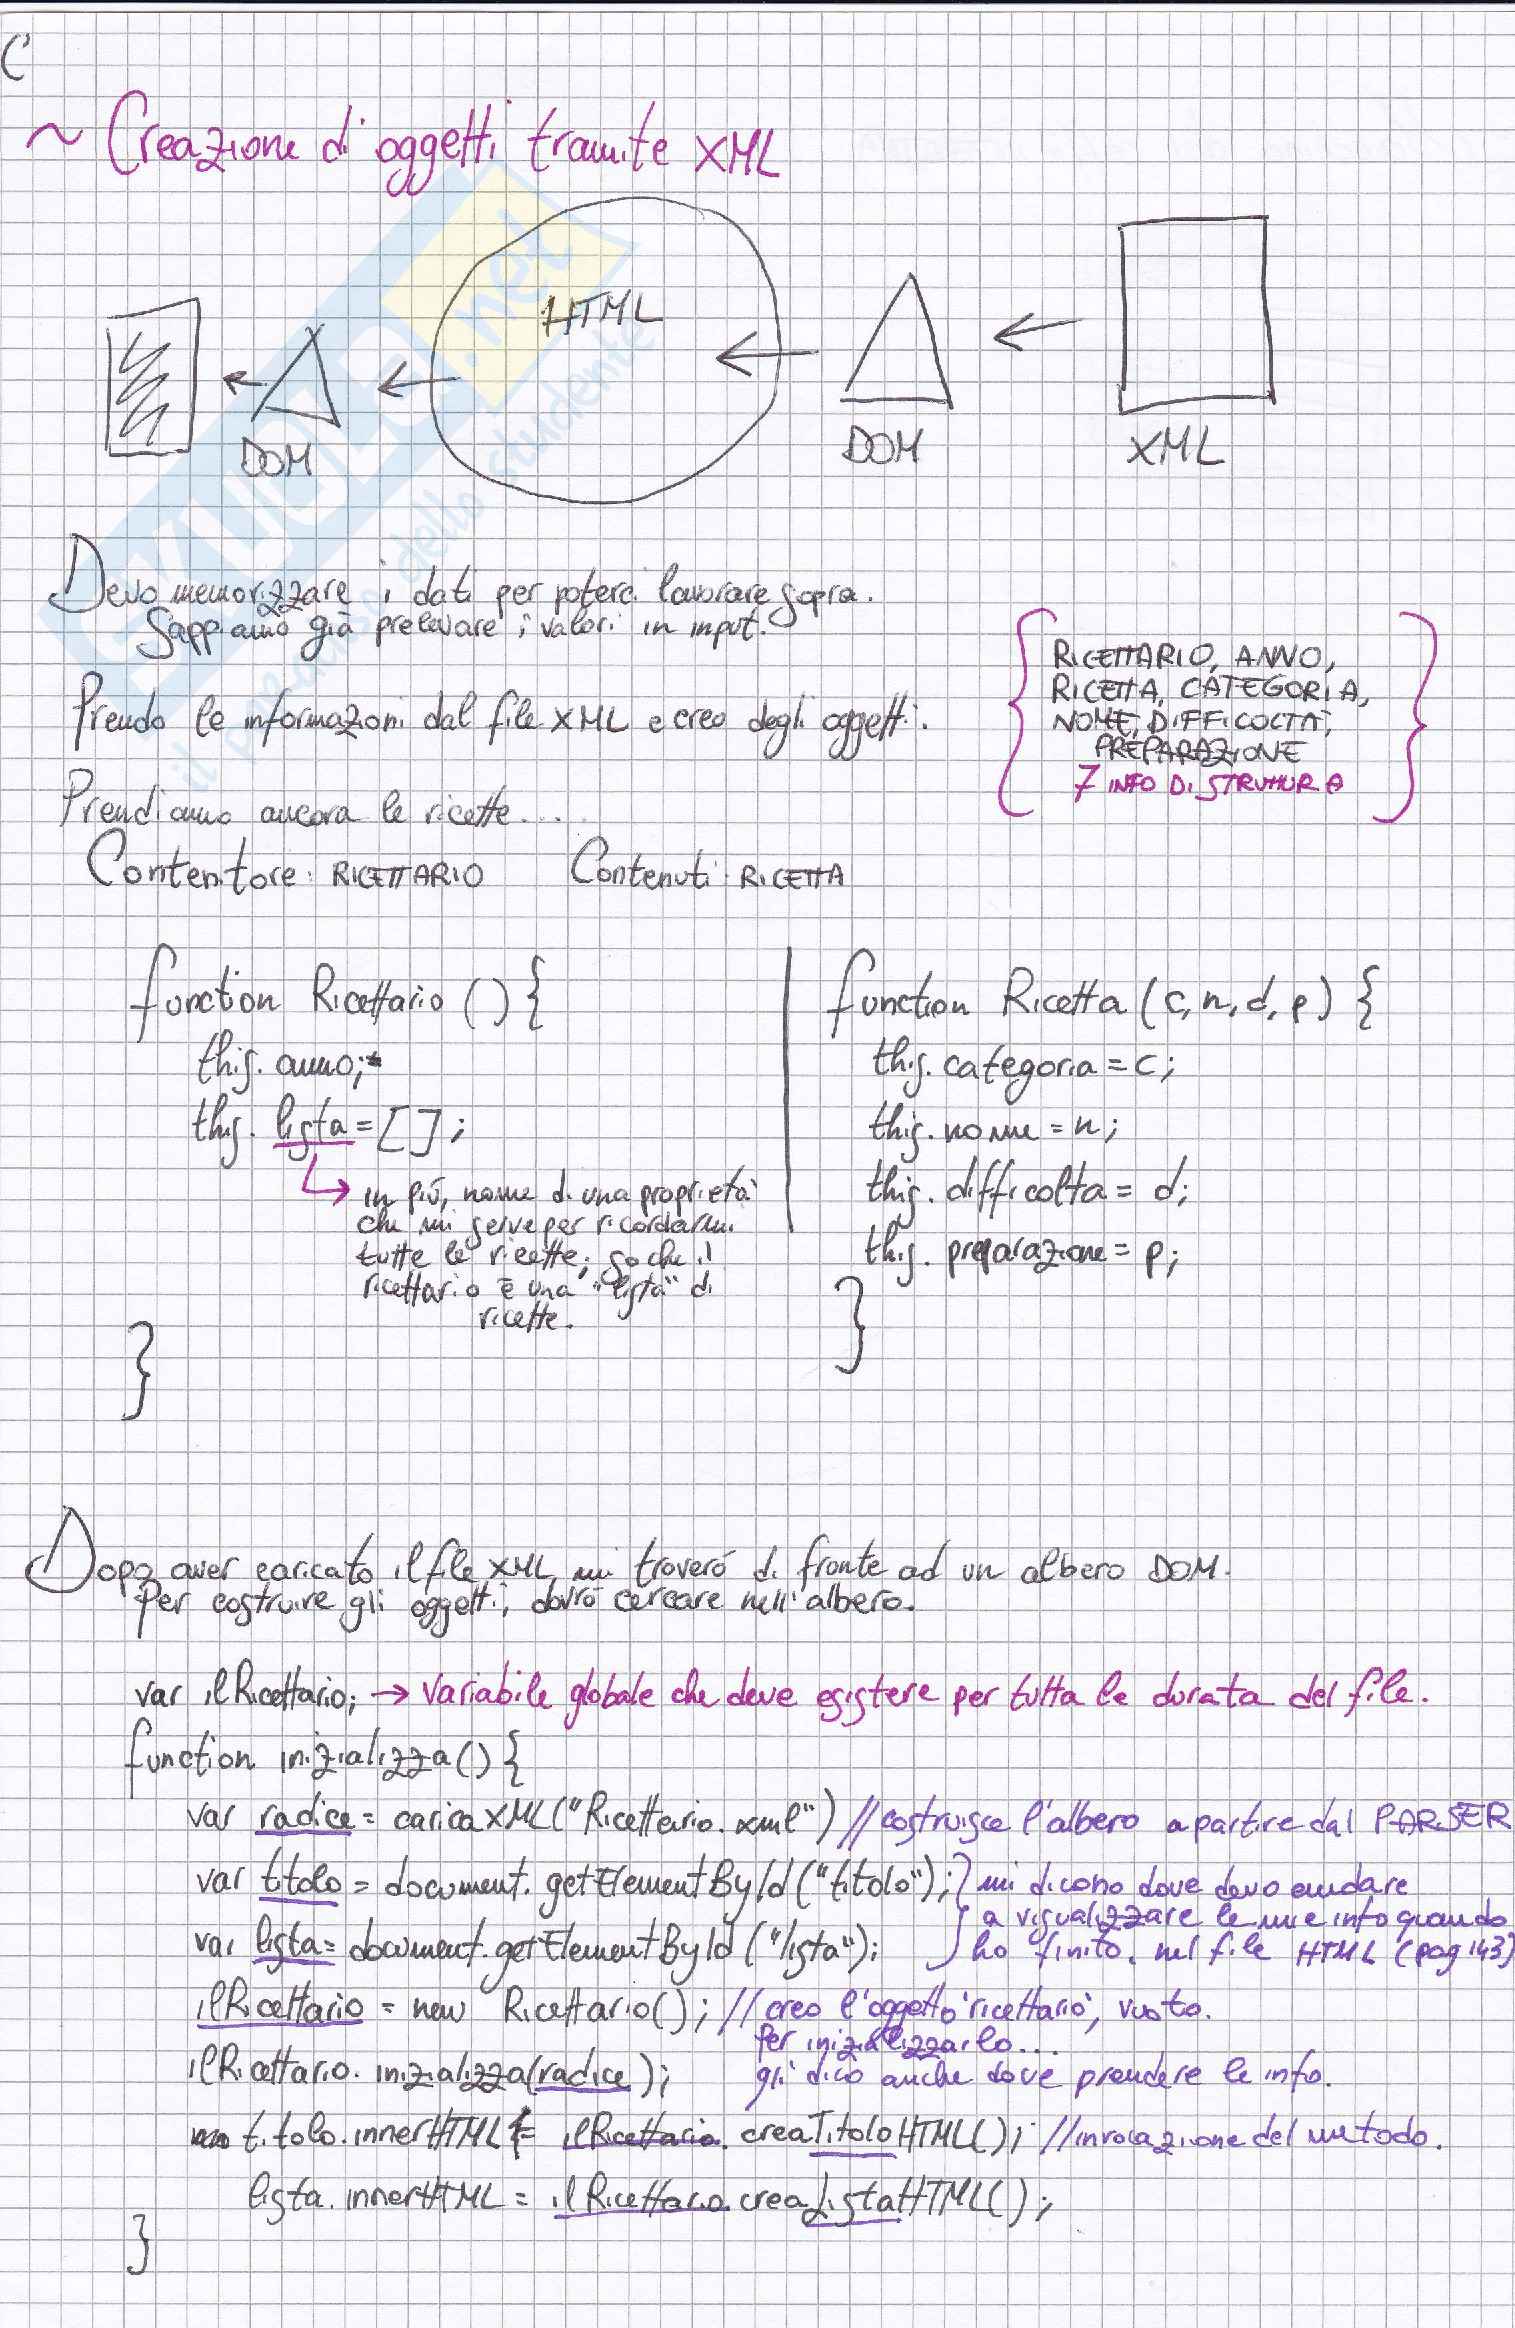 C
~ Creazione di oggetti tramite XML
HTML
DOM
DOM
XML
SKUOLA.net
il paradiso dello studente
Devo memorizzare i dati per poterci lavorare sopra.
Sappiamo già prelevare i valori in input.
Prendo le informazioni dal file XML e creo degli oggetti.
{ RICETTARIO, ANNO,
RICETTA, CATEGORIA,
NOME, DIFFICOLTÀ,
PREPARAZIONE
7 INFO DI STRUTTURA }
Prendiamo ancora le ricette...
Contenitore: RICETTARIO Contenuti: RICETTA
function Ricettario () {
this.anno;
this.lista = [];
→ in più, nome di una proprietà
che mi serve per ricordarmi
tutte le ricette; so che il
ricettario è una "lista" di
ricette.
}
function Ricetta (c, n, d, p) {
this.categoria = c;
this.nome = n;
this.difficolta = d;
this.preparazione = p;
}
Dopo aver caricato il file XML mi troverò di fronte ad un albero DOM.
Per costruire gli oggetti, dovrò cercare nell'albero.
var ilRicettario; → variabile globale che deve esistere per tutta la durata del file.
function inizializza() {
var radice = caricaXML("Ricettario.xml") // costruisce l'albero a partire dal PARSER
var titolo = document.getElementById("titolo"); } mi dicono dove devo andare
a visualizzare le mie info quando
var lista = document.getElementById("lista"); } ho finito, nel file HTML (pag 143)
ilRicettario = new Ricettario(); // creo l'oggetto 'ricettario', vuoto.
Per inizializzarlo...
ilRicettario.inizializza(radice); gli dico anche dove prendere le info.
titolo.innerHTML = ilRicettario.creaTitoloHTML(); // invocazione del metodo.
lista.innerHTML = ilRicettario.creaListaHTML();
}